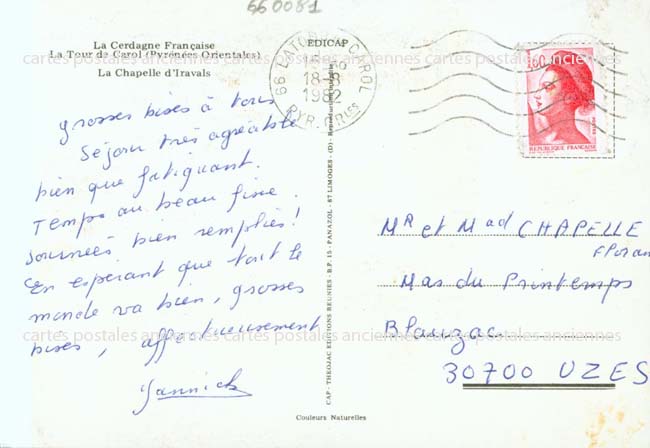 660081
La Cerdagne Française
La Tour de Carol (Pyrénées Orientales)
La Chapelle d'Iravals
EDICAP
66 LATOUR DE CAROL
18-8
1982
PYR. ORIES
1,60
REPUBLIQUE FRANÇAISE
cartes postales anciennes cartes postales anciennes cartes postales anciennes
grosses bises à tous
Séjour très agréable
bien que fatiguant.
Temps au beau fixe.
Journées bien remplies!
En espérant que tout le
monde va bien, grosses
bises, affectueusement
Yannick
CAP - THEOJAC EDITIONS REUNIES - B.P. 15 - PANAZOL - 87 LIMOGES - (D) - Reproduction interdite
Mr et Mad CHAPELLE
Floran
Mas du Printemps
Blauzac
30700 UZES
cartes postales anciennes cartes postales anciennes cartes postales anciennes
Couleurs Naturelles